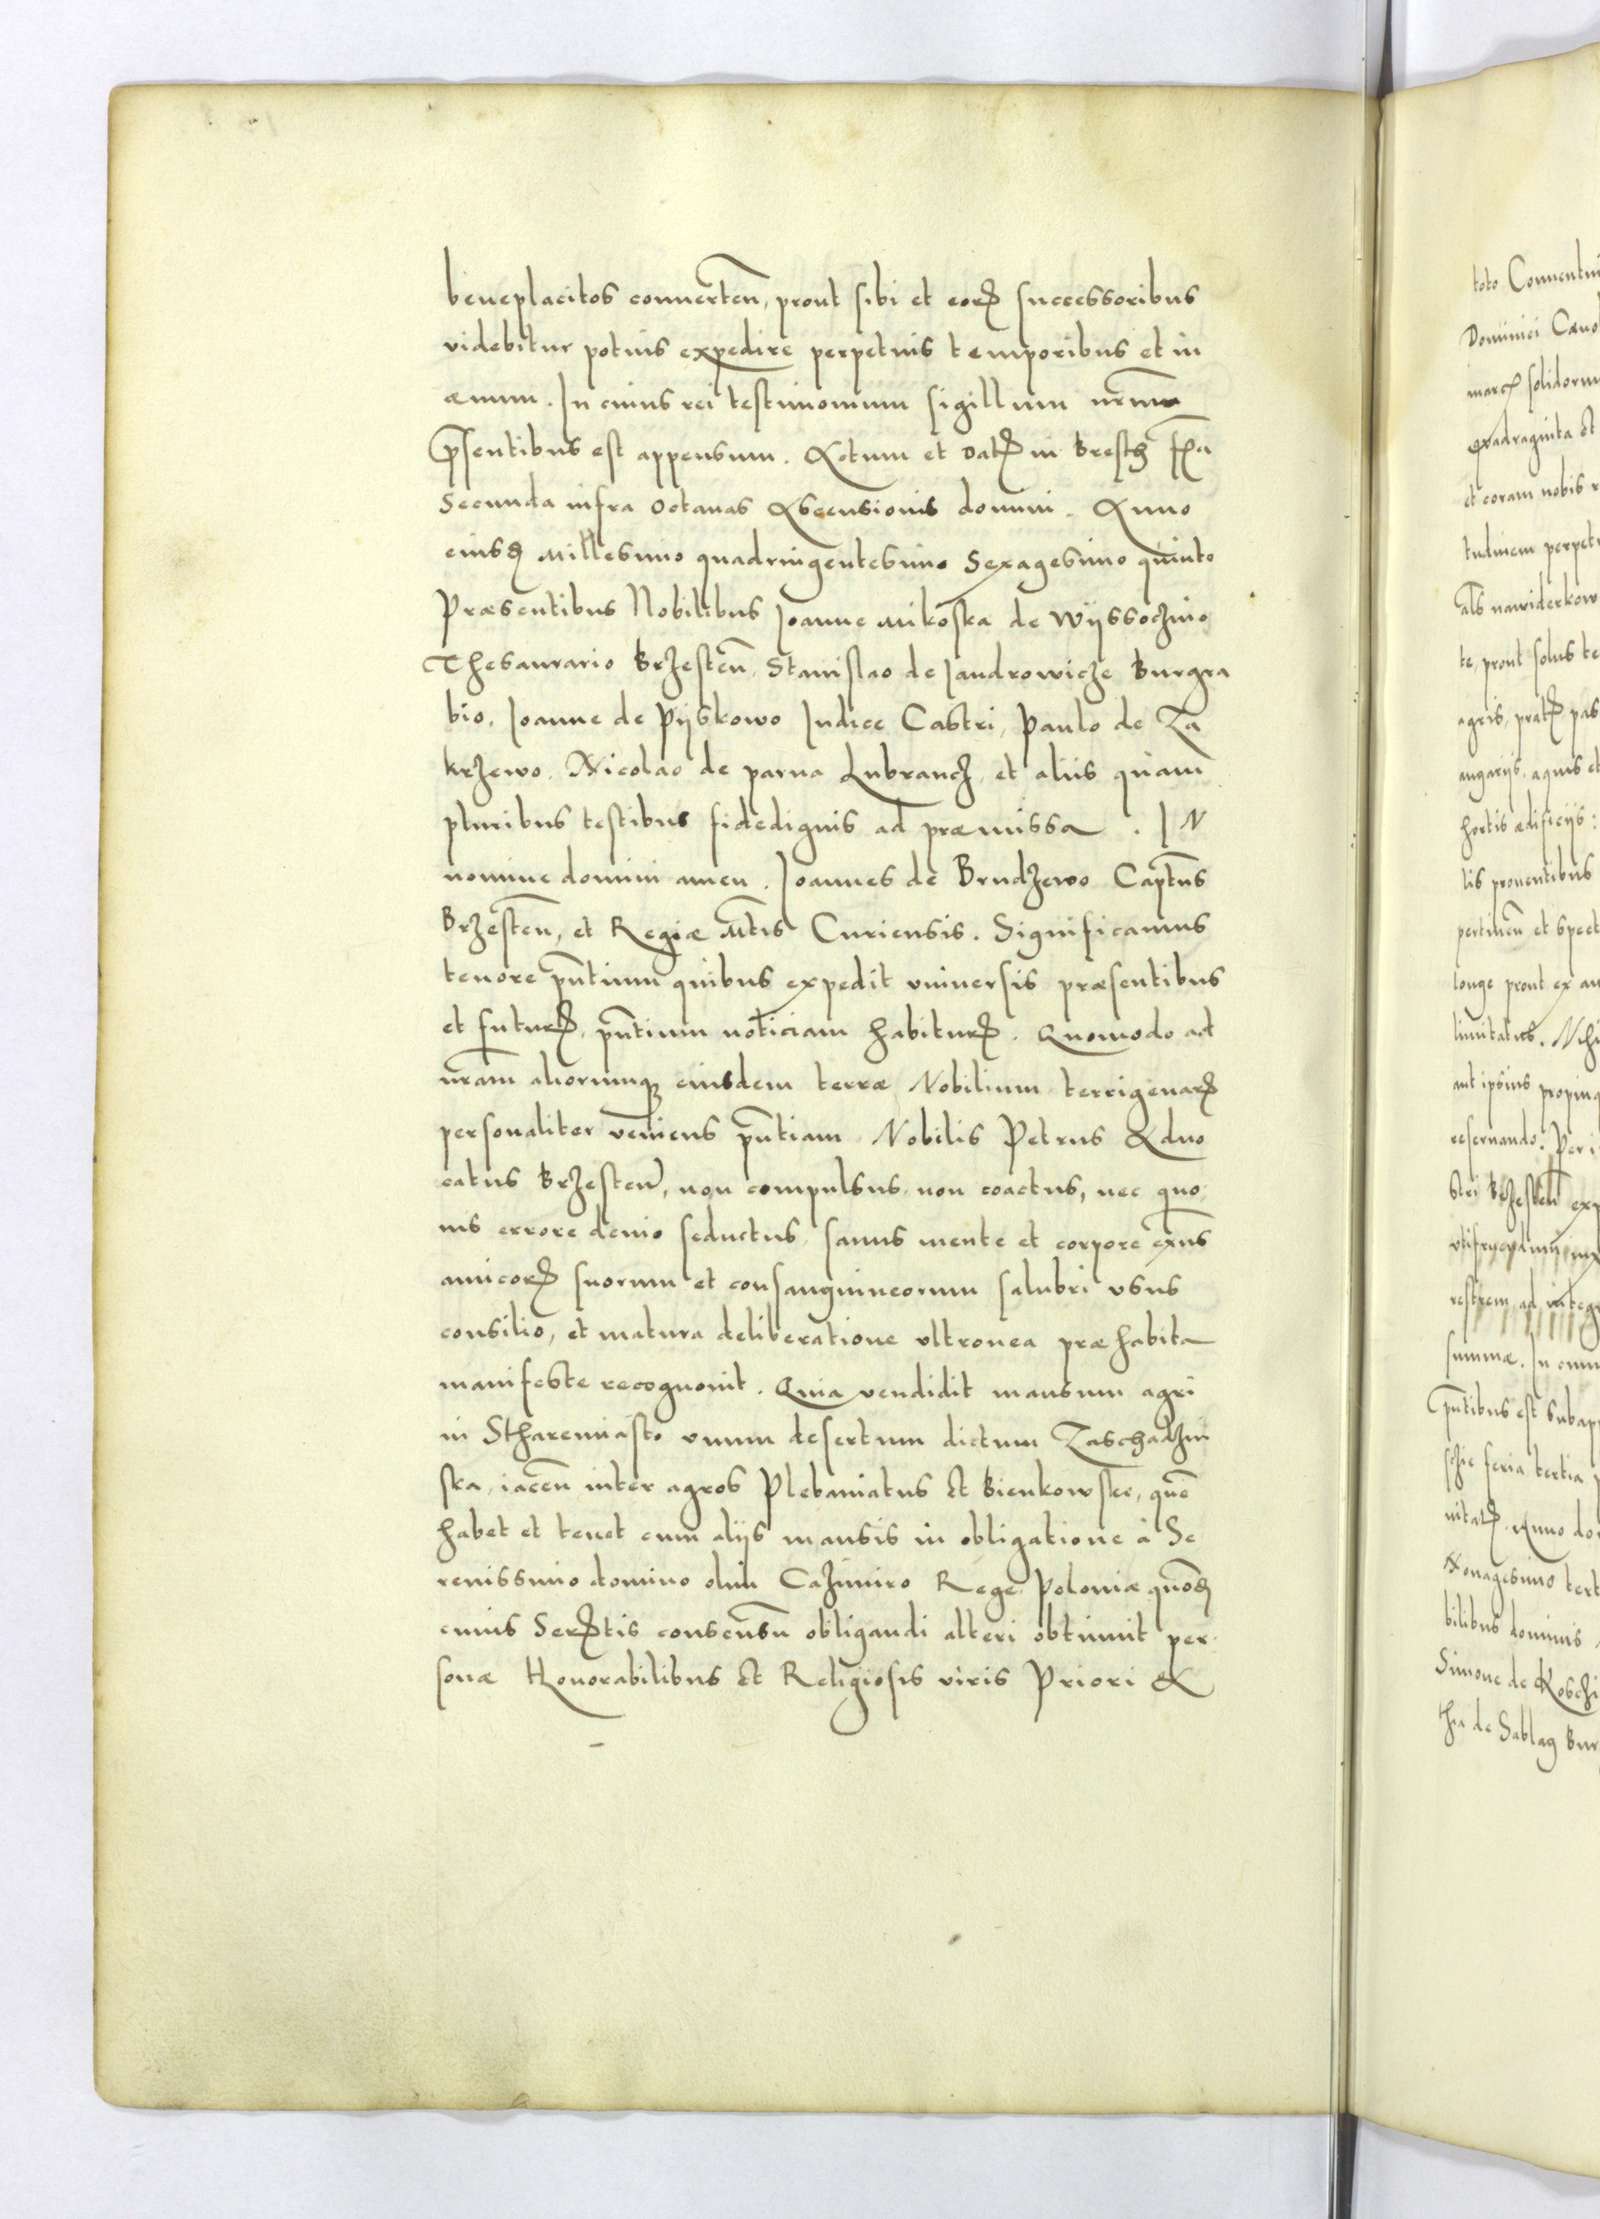 beneplacitos conuerteñ, prout sibi et eorꝝ successoribus
videbitur potius expedire perpetuis temporibus et in
æuum. In cuius rei testimonium sigillum nr̃um
p̃sentibus est appensum. Actum et Datꝝ in Bresth fꝝa
Secunda infra octauas Ascensionis domini. Anno
eiusꝫ Millesimo quadringentesimo Sexagesimo quinto
Præsentibus Nobilibus Joanne Mikoska de Wÿssoczino
Thesaurario Brzesteñ, Stanislao de Jandrowicze Burgra
bio, Joanne de Pÿskowo Judice Castri, Paulo de Za
krzewo. Nicolao de parua Lubrancz, et aliis quam
pluribus testibus fidedignis ad præmissa. IN
nomine domini amen. Joannes de Brudzewo Capt̃us
Brzesteñ, et Regiæ Mt̃is Curiensis. Significamus
tenore pñtium quibus expedit vniuersis præsentibus
et futurꝝ, pñtium noticiam habiturꝝ. Quomodo ad
nr̃am aliorumqꝫ eiusdem terræ Nobilium terrigenarꝝ
personaliter veniens pñtiam Nobilis Petrus Aduo
catus Brzesteñ, non compulsus, non coactus, nec quo
uis errore deuio seductus, sanus mente et corpore exñs
amicorꝝ suorum et consanguineorum salubri vsus
consilio, et matura deliberatione vltronea præhabita
manifeste recognouit. Quia vendidit mansum agri
in Stharemiasto vnum desertum dictum Zaschadzin
ska, iaceñ inter agros Plebaniatus et Bienkowskie, quẽ
habet et tenet cum alijs mansis in obligatione à Se
renissimo domino olim Cazimiro Rege Poloniæ quoꝫ
cuius Serꝝtis consensũ obligandi alteri obtinuit per
sonæ Honorabilibus et Religiosis viris Priori &
toto Conuentui
Dominici
marcꝝ solidorum
quadraginta et
et coram nobis
tudinem perpet
als nawiderkow
te, prout solus te
agris, pratꝝ pas
angarijs, aquis et
hortis ædificijs:
lis prouentibus
pertineñ et spect
longe prout ex an
limitatus. Nihi
aut ipsius propinq
reseruando. Per i
stri Brzesteñ exp
restrem, ad integr
summæ. In cuiu
pñtibus est subapp
feria tertia
nitatꝝ Anno do
Nonagesimo tert
bilibus dominis
Simone de Koschi
tha de Sablag Bur